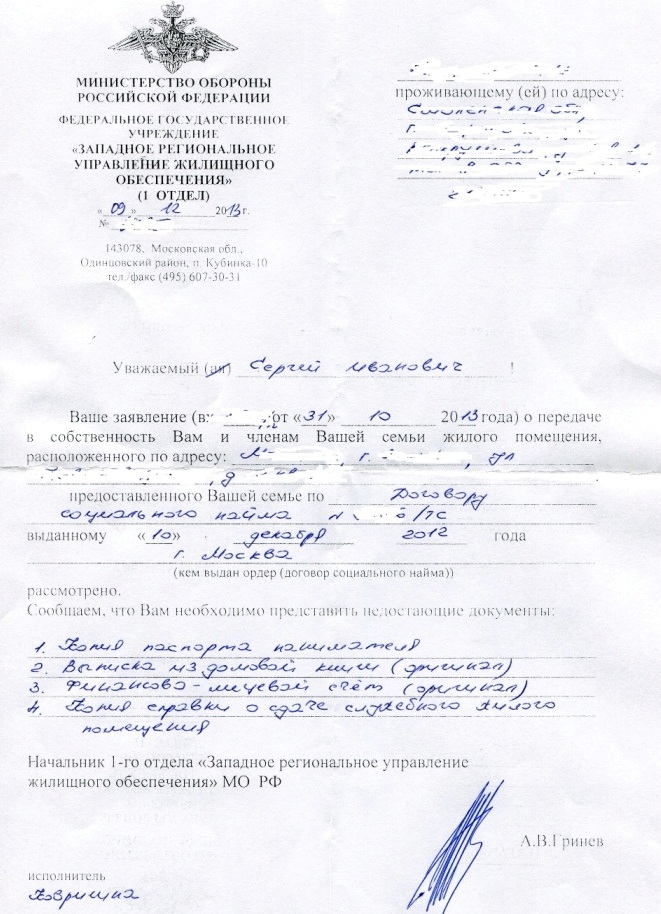 МИНИСТЕРСТВО ОБОРОНЫ
РОССИЙСКОЙ ФЕДЕРАЦИИ
ФЕДЕРАЛЬНОЕ ГОСУДАРСТВЕННОЕ
УЧРЕЖДЕНИЕ
«ЗАПАДНОЕ РЕГИОНАЛЬНОЕ
УПРАВЛЕНИЕ ЖИЛИЩНОГО
ОБЕСПЕЧЕНИЯ»
(1 ОТДЕЛ)
«09» 12 2013г.
№
143078, Московская обл.,
Одинцовский район, п. Кубинка-10
тел./факс (495) 607-30-31
проживающему (ей) по адресу:
Уважаемый (ая) Сергей Иванович !
Ваше заявление (вх. от «31» 10 2013 года) о передаче
в собственность Вам и членам Вашей семьи жилого помещения,
расположенного по адресу: , г. , ул
, д
предоставленного Вашей семье по Договору
социального найма /ПС
выданному «10» декабря 2012 года
г. Москва
(кем выдан ордер (договор социального найма))
рассмотрено.
Сообщаем, что Вам необходимо представить недостающие документы:
1. Копия паспорта нанимателя
2. Выписка из домовой книги (оригинал)
3. Финансово-лицевой счёт (оригинал)
4. Копия справки о сдаче служебного жилого
помещения
Начальник 1-го отдела «Западное региональное управление
жилищного обеспечения» МО РФ
А.В.Гринев
исполнитель